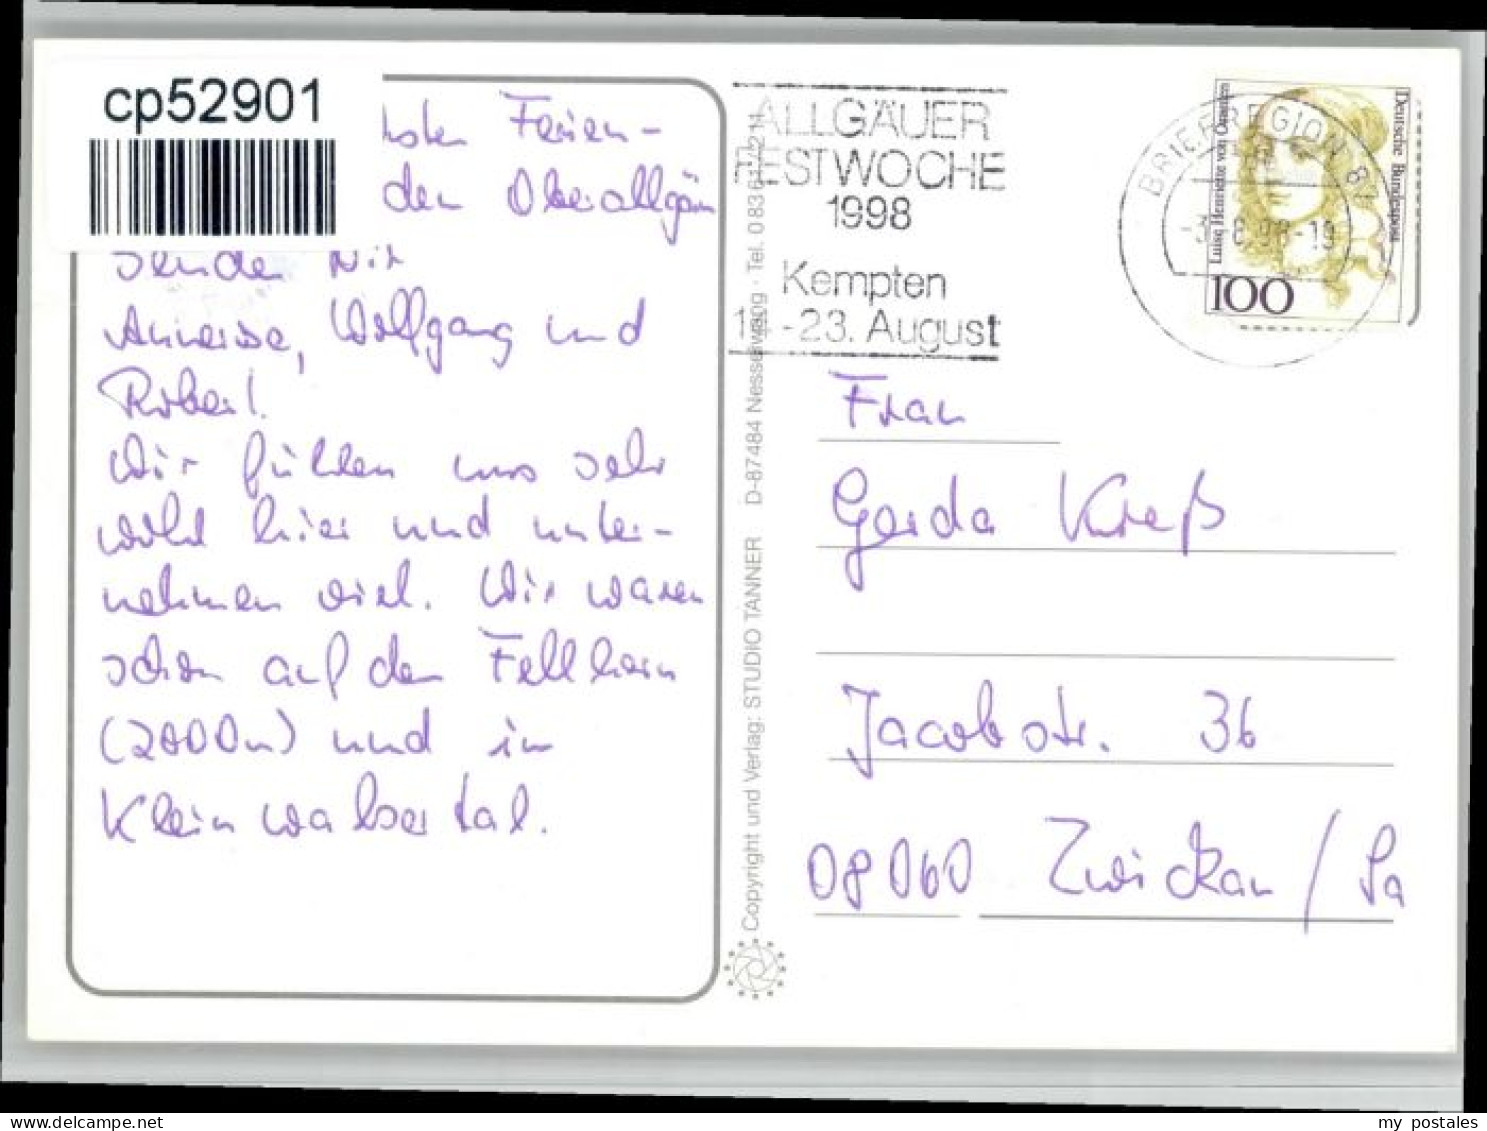 cp52901
Ferien-
den Oberallgäu
senden wir
Annerose, Wolfgang und
Robert.
Wir fühlen uns sehr
wohl hier und unter-
nehmen viel. Wir waren
schon auf dem Fellhorn
(2000m) und im
Kleinwalsertal.
Copyright und Verlag: STUDIO TANNER D-87484 Nesselwang · Tel. 08361/1214
ALLGÄUER
FESTWOCHE
1998
Kempten
-23. August
BRIEFREGION 87
-3.-8.98-19
Luise Henriette von Oranien
Deutsche Bundespost
100
Frau
Gerda Kreß
Jacobstr. 36
08060 Zwickau / Sa
my postales